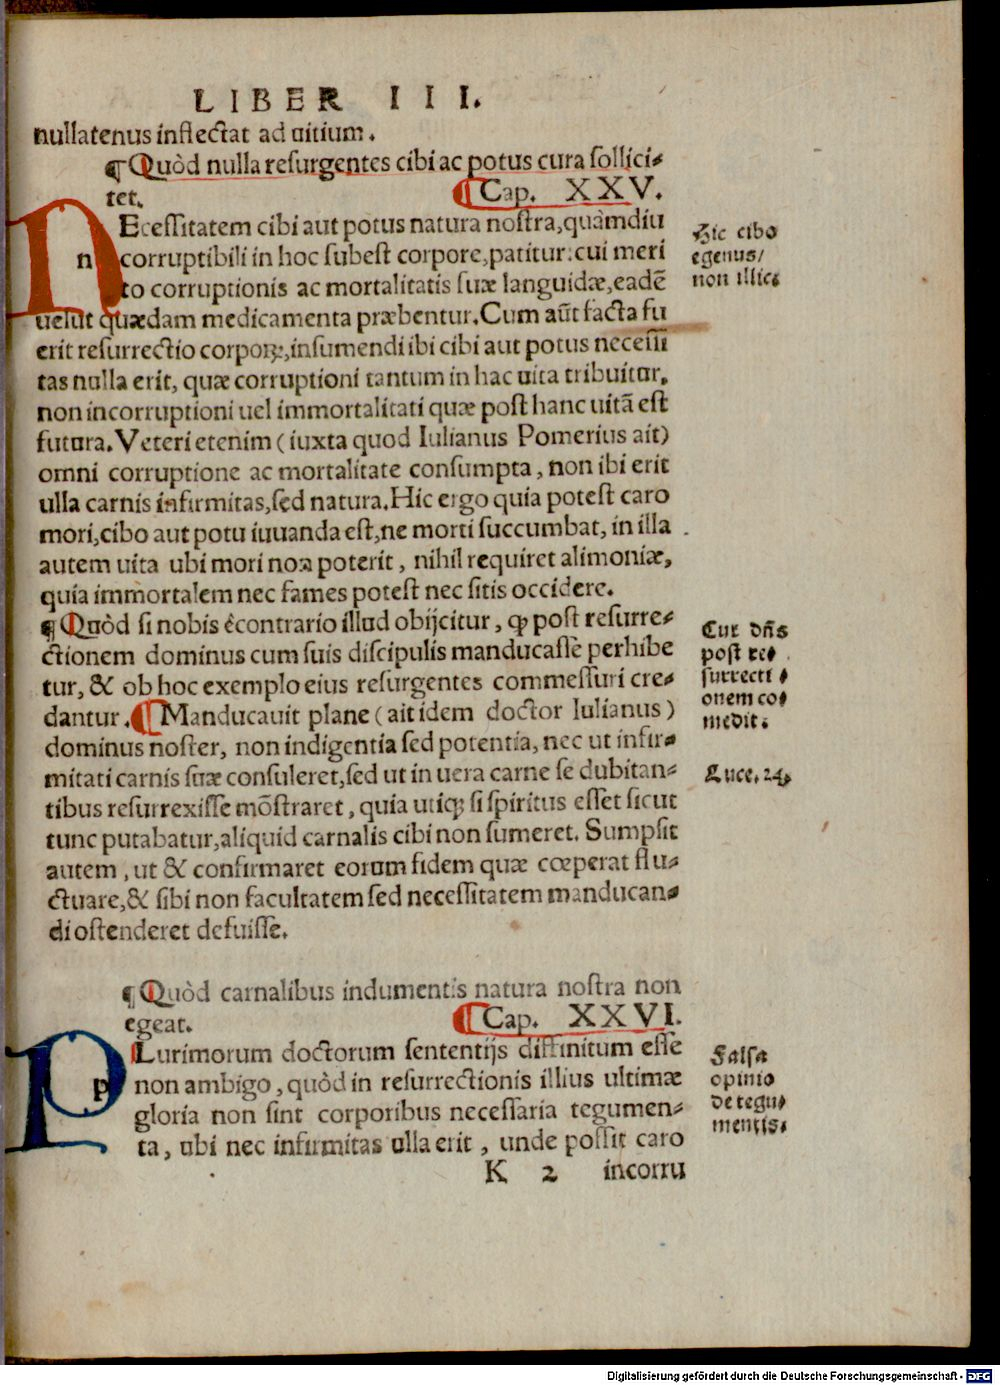 LIBER III.
nullatenus inflectat ad uitium.
¶ Quòd nulla resurgentes cibi ac potus cura sollici-
tet.
Cap. XXV.
NEcessitatem cibi aut potus natura nostra, quàmdiu
n corruptibili in hoc subest corpore, patitur: cui meri
to corruptionis ac mortalitatis suæ languidæ, eadē
uelut quædam medicamenta præbentur. Cum aūt facta fu
erit resurrectio corporꝝ, insumendi ibi cibi aut potus necessi
tas nulla erit, quæ corruptioni tantum in hac uita tribuitur,
non incorruptioni uel immortalitati quæ post hanc uitā est
futura. Veteri etenim (iuxta quod Iulianus Pomerius ait)
omni corruptione ac mortalitate consumpta, non ibi erit
ulla carnis infirmitas, sed natura. Hic ergo quia potest caro
mori, cibo aut potu iuuanda est, ne morti succumbat, in illa
autem uita ubi mori non poterit, nihil requiret alimoniæ,
quia immortalem nec fames potest nec sitis occidere.
¶ Quòd si nobis ècontrario illud obijcitur, ꝙ post resurre-
ctionem dominus cum suis discipulis manducasse perhibe
tur, & ob hoc exemplo eius resurgentes commessuri cre-
dantur. Manducauit plane (ait idem doctor Iulianus)
dominus noster, non indigentia sed potentia, nec ut infir-
mitati carnis suæ consuleret, sed ut in uera carne se dubitan-
tibus resurrexisse mōstraret, quia utiqꝫ si spiritus esset sicut
tunc putabatur, aliquid carnalis cibi non sumeret. Sumpsit
autem, ut & confirmaret eorum fidem quæ cœperat flu-
ctuare, & sibi non facultatem sed necessitatem manducan-
di ostenderet defuisse.
¶ Quòd carnalibus indumentis natura nostra non
egeat.
Cap. XXVI.
PLurimorum doctorum sententijs diffinitum esse
p non ambigo, quòd in resurrectionis illius ultimæ
gloria non sint corporibus necessaria tegumen-
ta, ubi nec infirmitas ulla erit, unde possit caro
K 2 incorru
Hic cibo
egenus/
non illic.
Cur dñs
post re
surrecti
onem co
medit.
Luce. 24.
Falsa
opinio
de tegu
mentis.
Digitalisierung gefördert durch die Deutsche Forschungsgemeinschaft - DFG